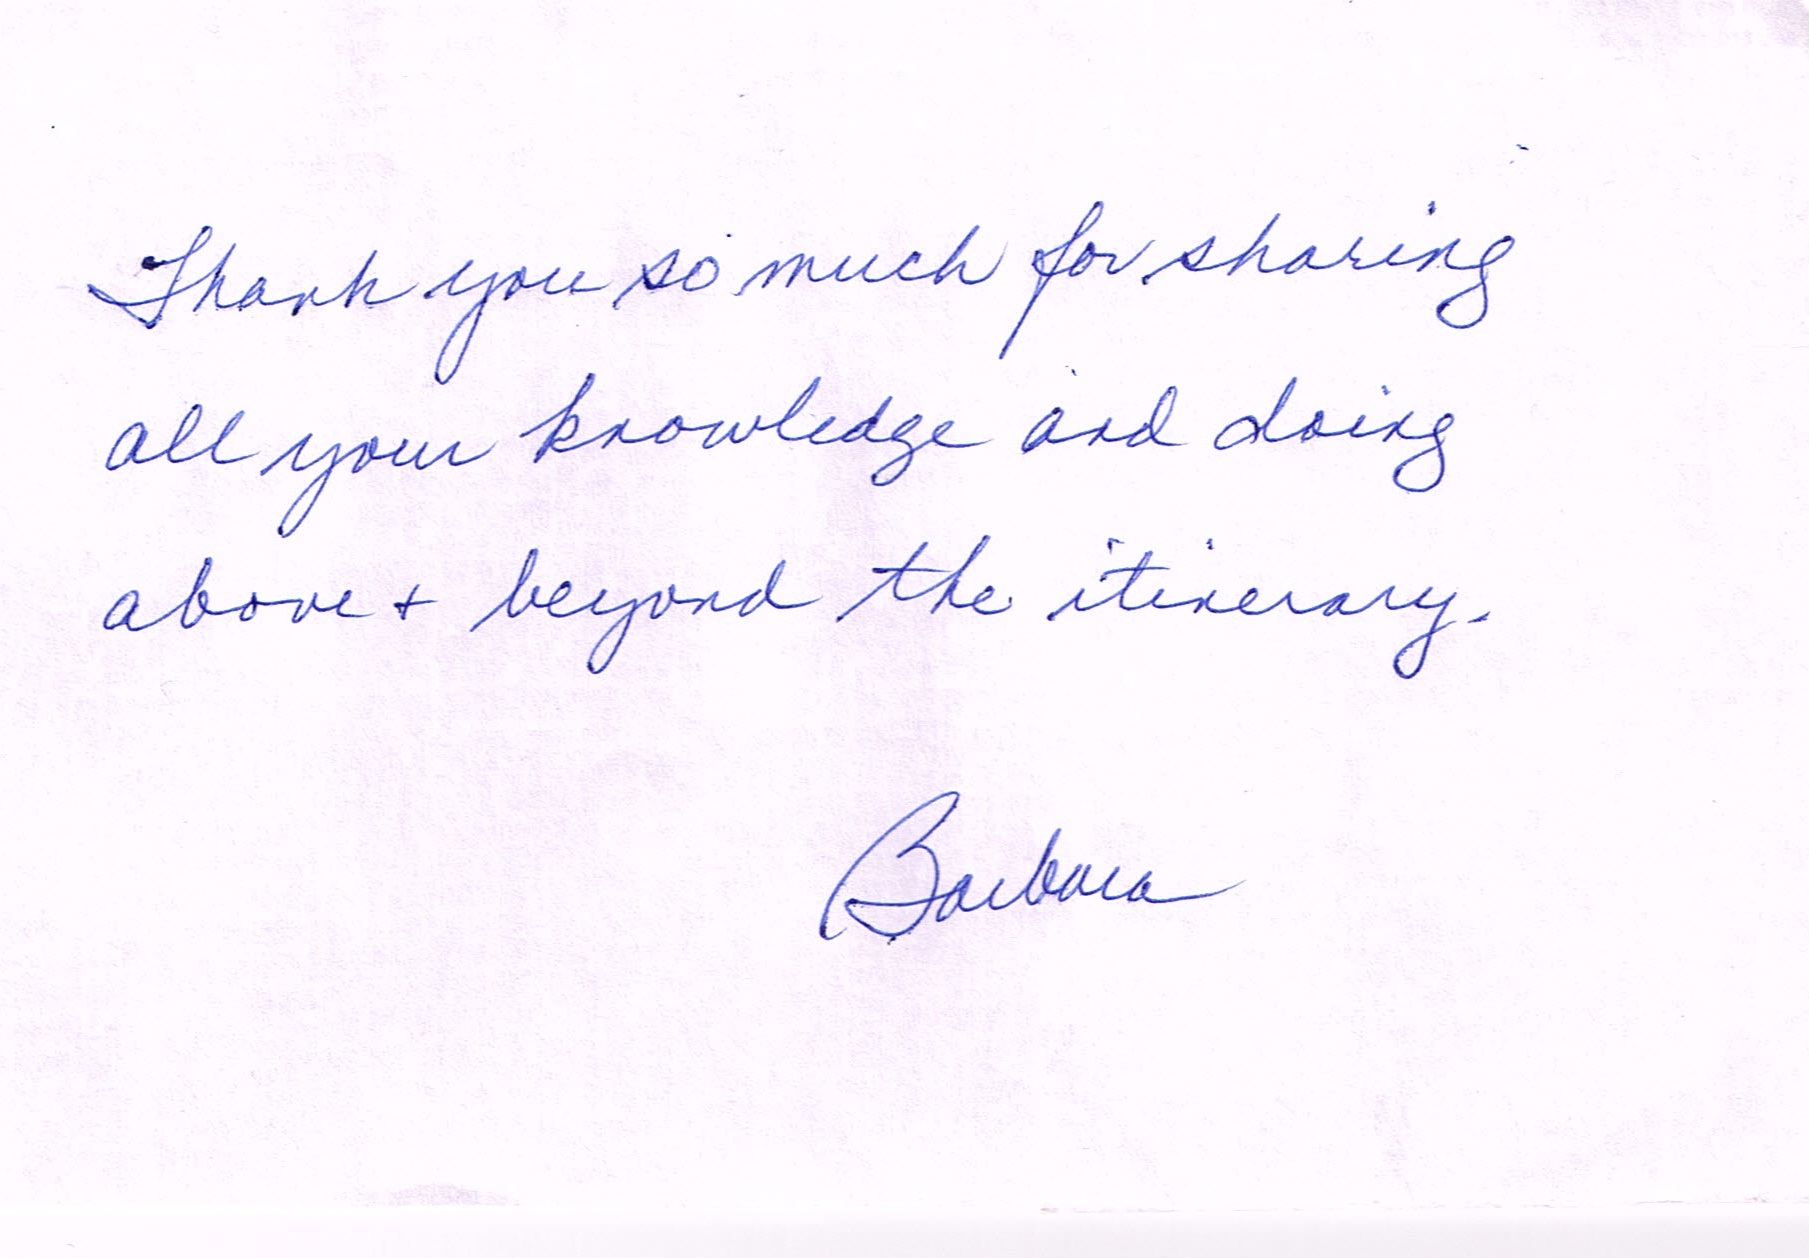 Thank you so much for sharing
all your knowledge and doing
above + beyond the itinerary.
Barbara